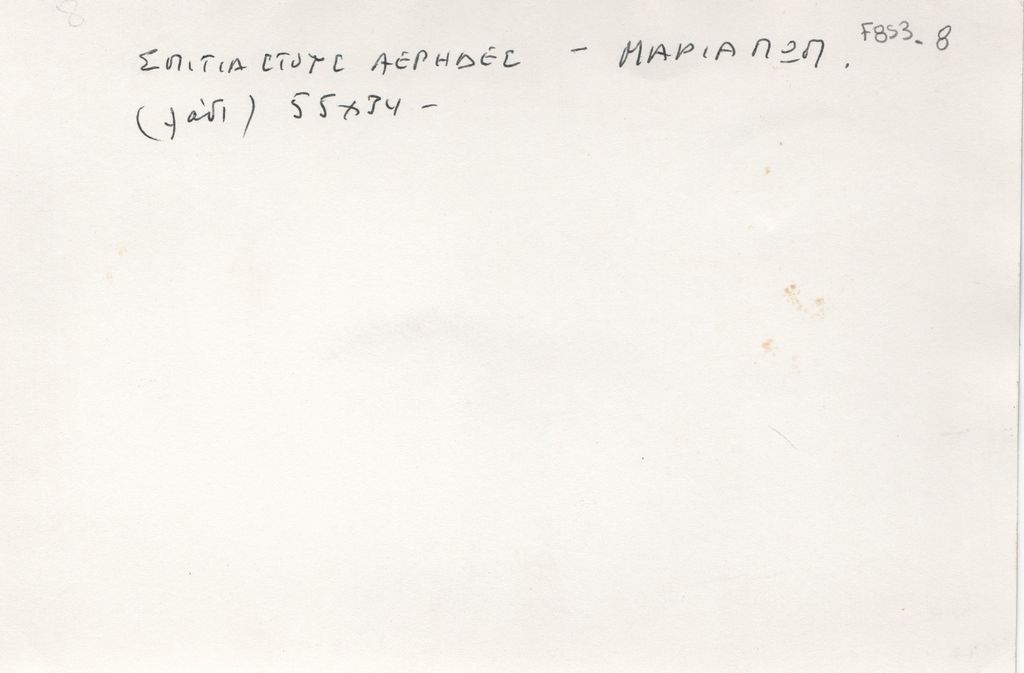 ΣΠΙΤΙΑ ΣΤΟΥΣ ΑΕΡΗΔΕΣ - ΜΑΡΙΑ ΠΩΠ. F853-8
(λάδι) 55x34 -
8